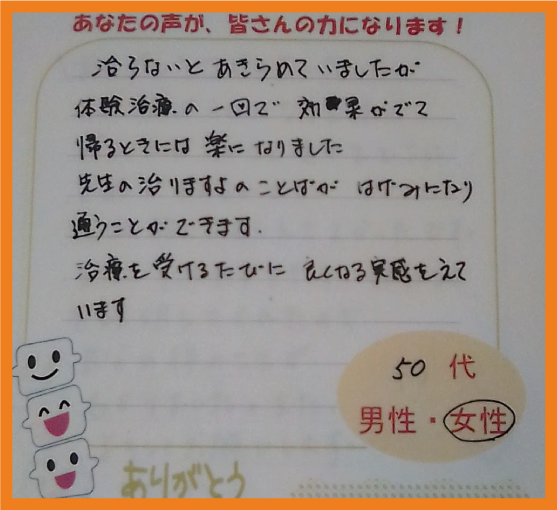 あなたの声が、皆さんの力になります！
治らないとあきらめていましたが
体験治療の一回で 効果がでて
帰るときには 楽に なりました
先生の治りますよの ことばが はげみになり
通うことができます.
治療を受けるたびに 良くなる実感をえて
います
50 代
男性・女性
ありがとう